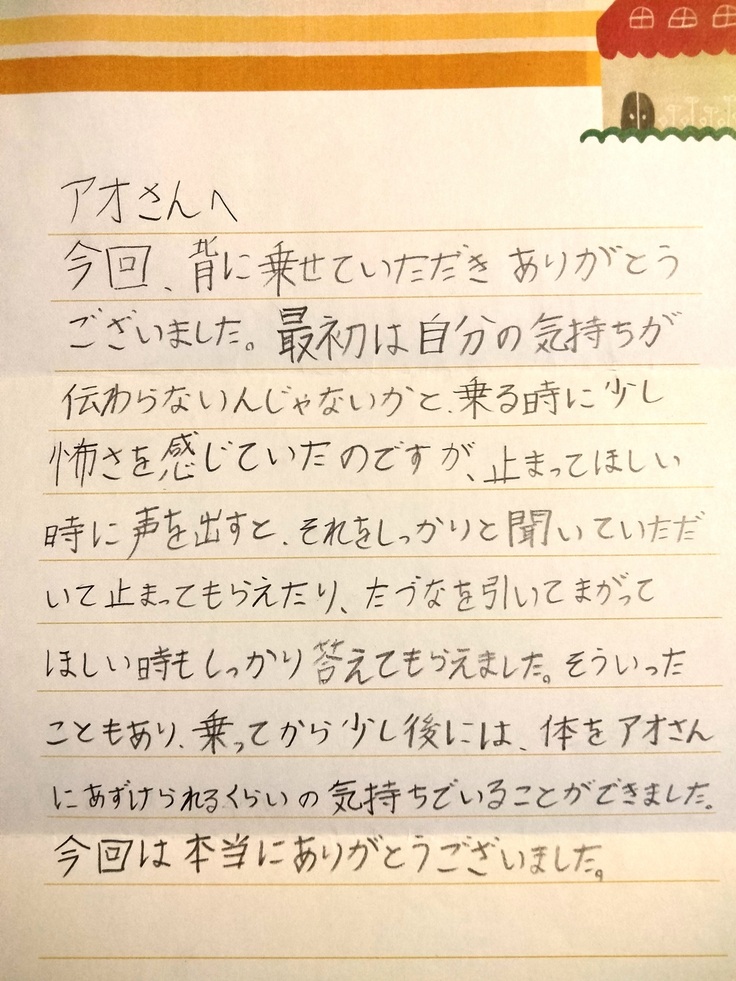 アオさんへ
今回、背に乗せていただき ありがとう
ございました。最初は自分の気持ちが
伝わらないんじゃないかと、乗る時に少し
怖さを感じていたのですが、止まってほしい
時に声を出すと、それをしっかりと聞いていただ
いて止まってもらえたり、たづなを引いてまがって
ほしい時もしっかり答えてもらえました。そういった
こともあり、乗ってから少し後には、体をアオさん
にあずけられるくらいの気持ちでいることができました。
今回は本当にありがとうございました。